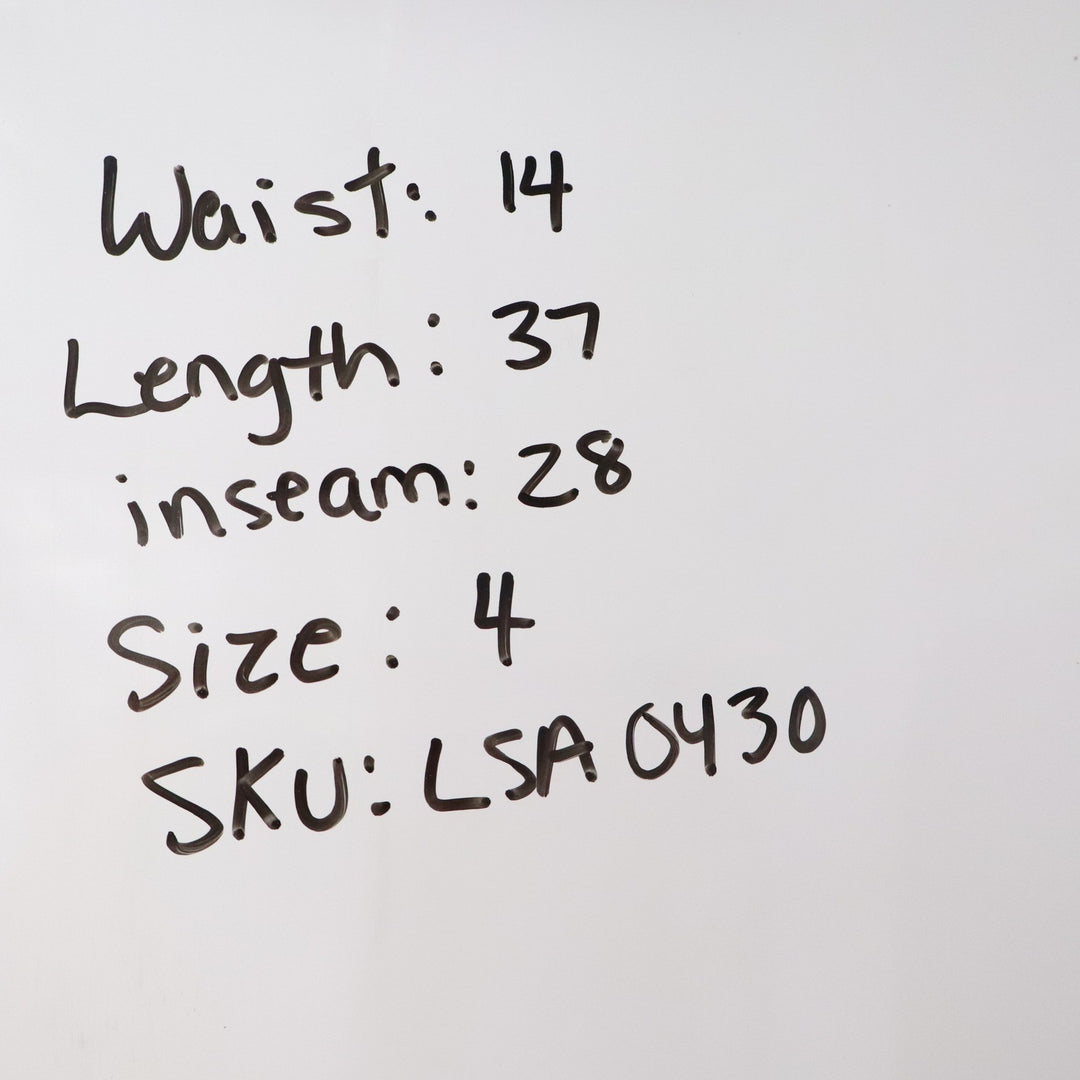 Waist: 14
Length: 37
inseam: 28
Size: 4
SKU: LSA 0430